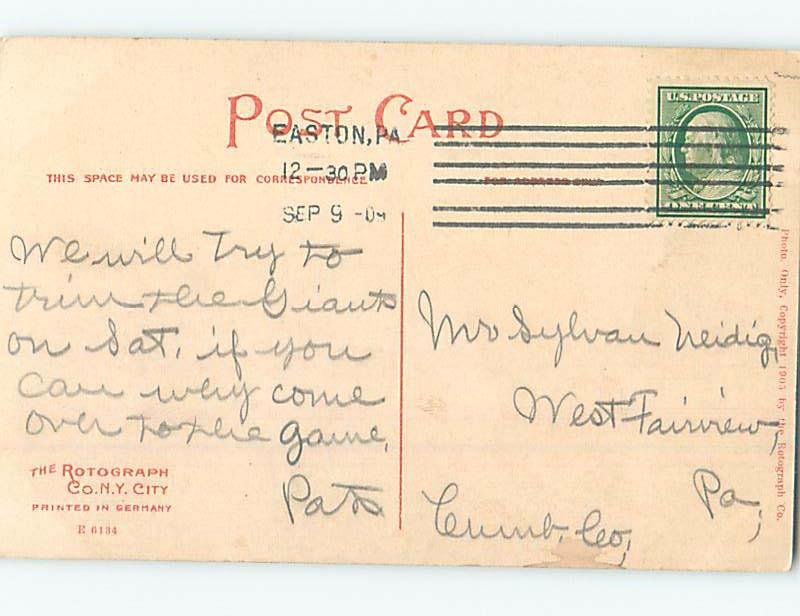 POST CARD
EASTON, PA
12-30 PM
SEP 9 -09
THIS SPACE MAY BE USED FOR CORRESPONDENCE
FOR ADDRESS ONLY
U.S. POSTAGE
We will Try to
trim the Giants
on Sat. if you
can why come
over to the game,
Pats
Mr Sylvan Neidig,
West Fairview,
Pa,
Cumb. Co,
THE ROTOGRAPH
CO. N.Y. CITY
PRINTED IN GERMANY
E 6134
Photo. Only, Copyright 1905 by the Rotograph Co.